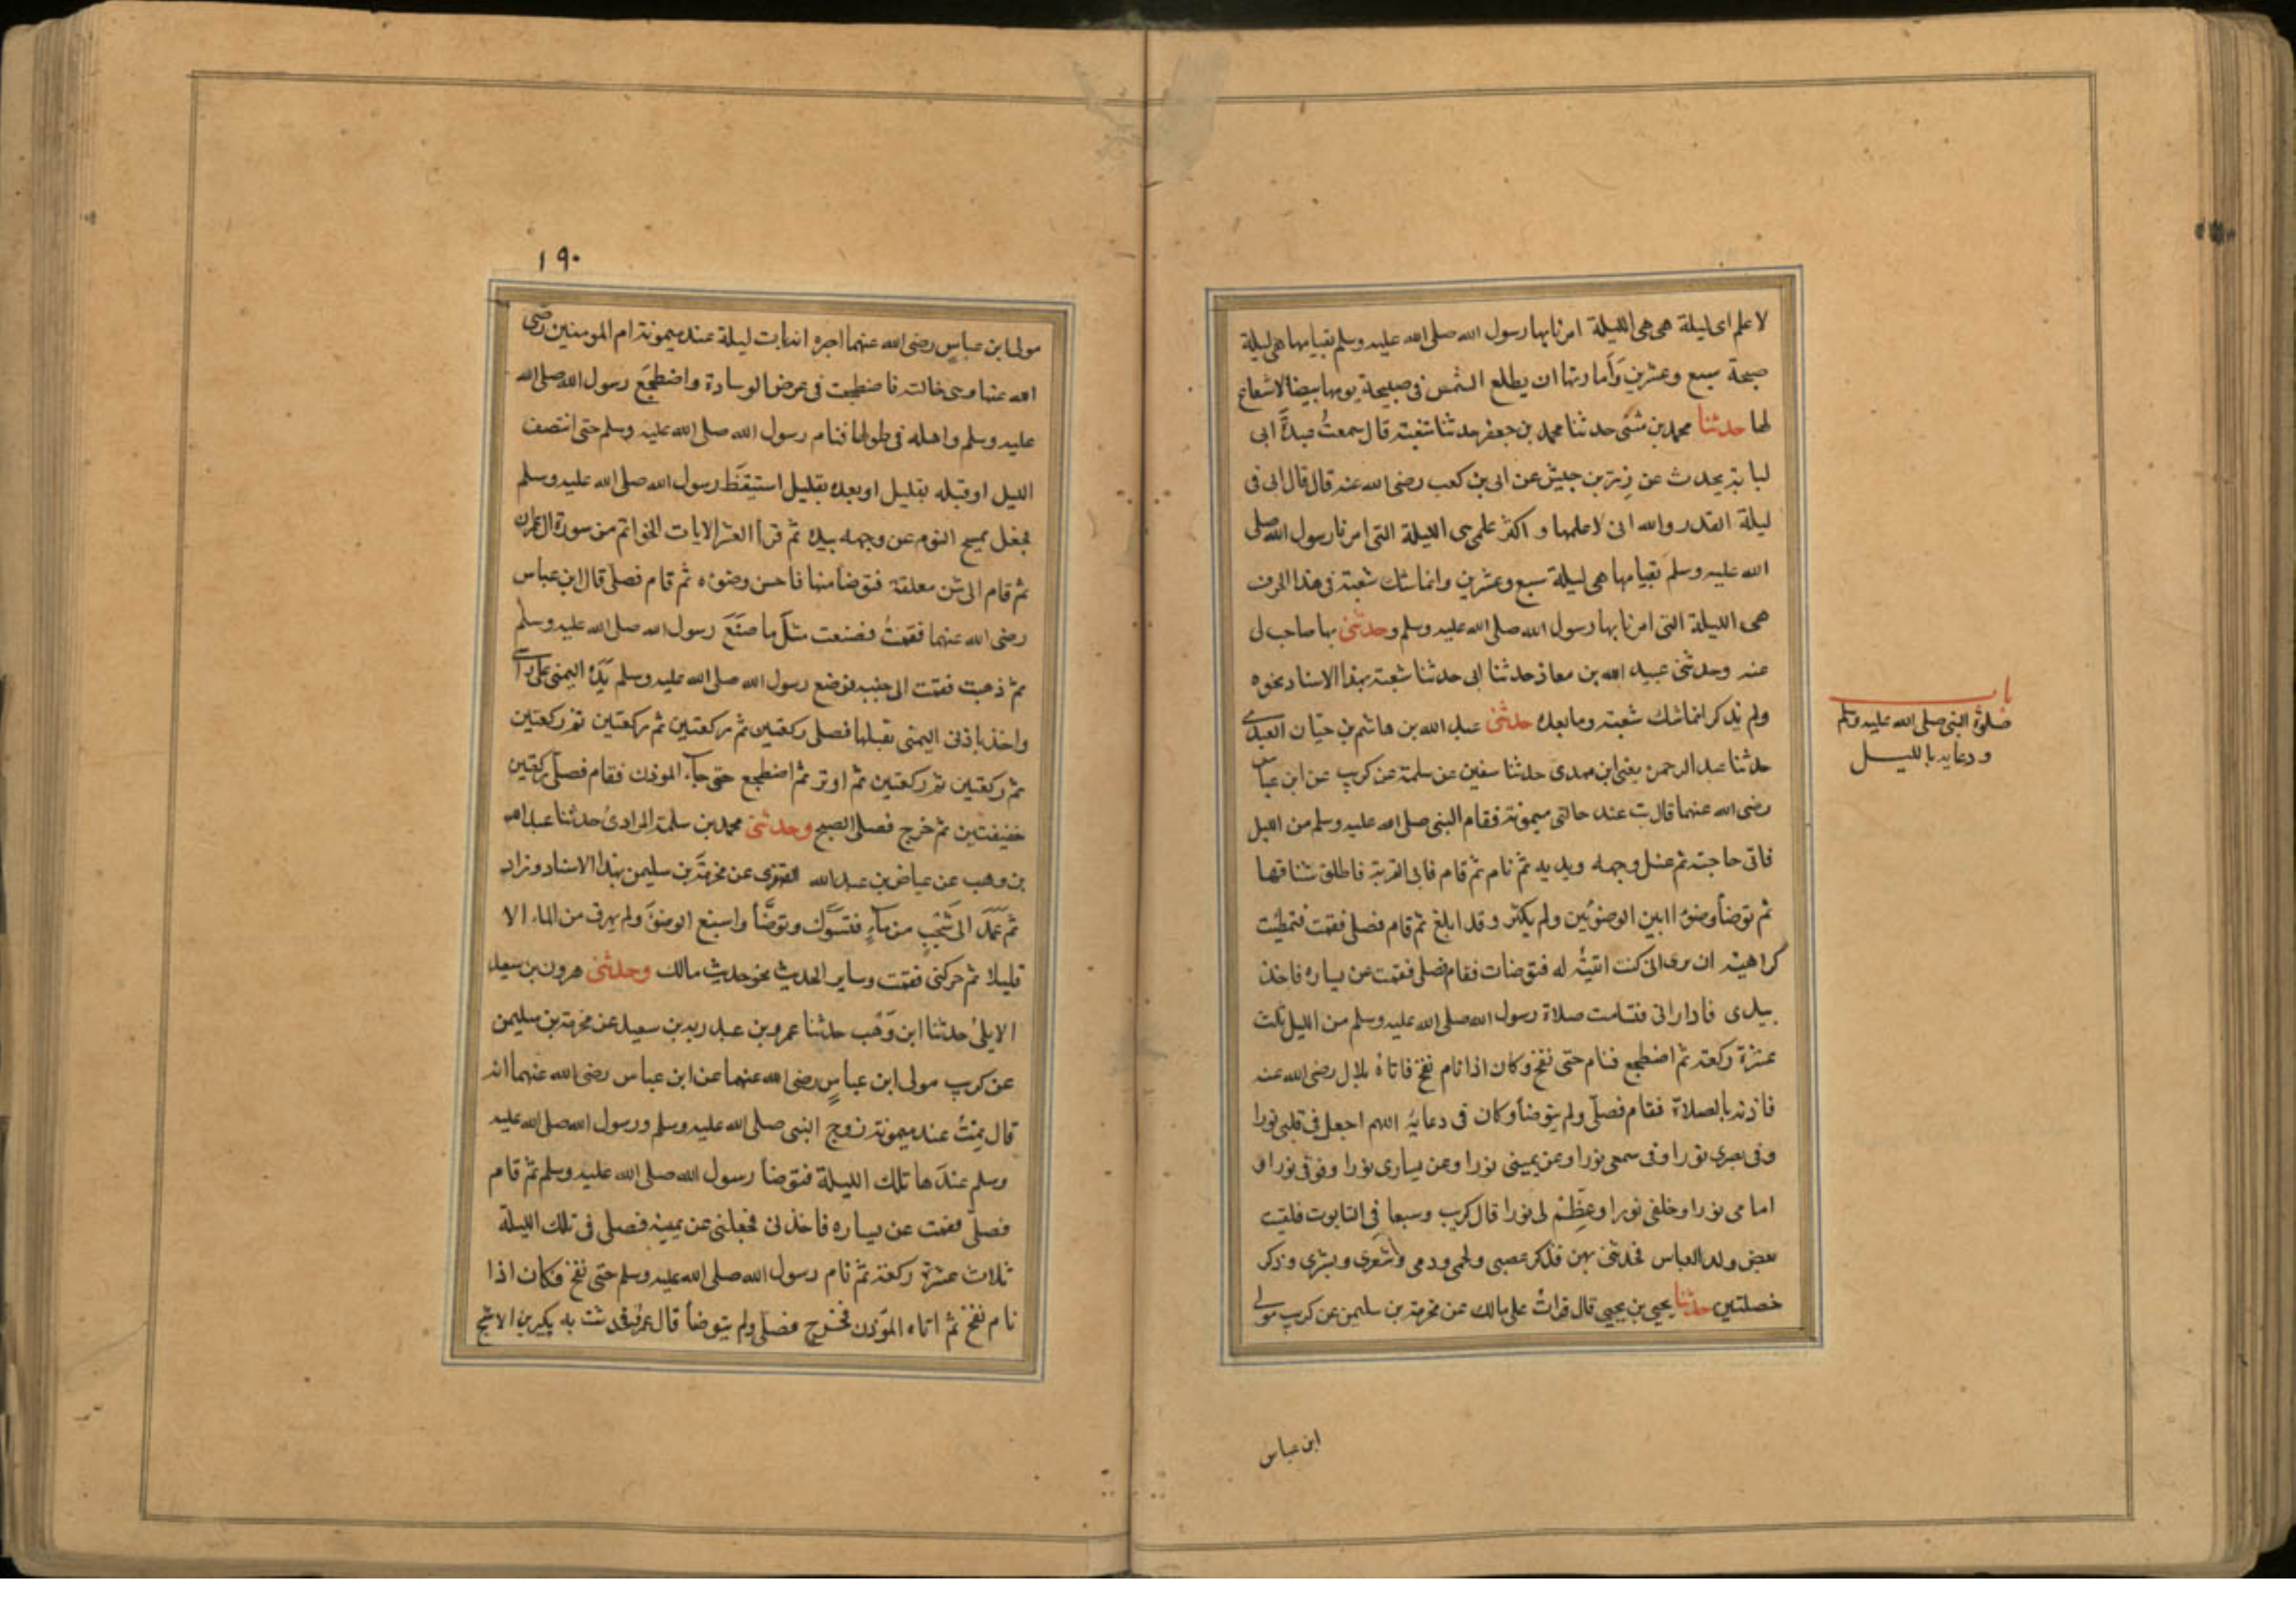 لاعلم اى ليلة هى هى الليلة امرنا بها رسول الله صلى الله عليه وسلم بقيامها هى ليلة
صبيحة سبع وعشرين وأمارتها ان يطلع الشمس فى صبيحة يومها بيضا لا شعاع
لها حدثنا محمد بن مثنى حدثنا محمد بن جعفر حدثنا شعبة قال سمعت عبدة ابى
لبابة يحدث عن زر بن حبيش عن ابى بن كعب رضى الله عنه قال قال ابى فى
ليلة القدر والله انى لاعلمها و اكثر علمى هى الليلة التى امرنا رسول الله صلى
الله عليه وسلم بقيامها هى ليلة سبع وعشرين وانما شك شعبة فى هذا الحرف
هى الليلة التى امرنا بها رسول الله صلى الله عليه وسلم وحدثنى بها صاحب ل
عنه وحدثنى عبيد الله بن معاذ حدثنا ابى حدثنا شعبة بهذا الاسناد نحوه
ولم يذكر انما شك شعبة وما بعده حدثنى عبد الله بن هاشم بن حيان العبدى
حدثنا عبد الرحمن يعنى ابن مهدى حدثنا سفين عن سلمة عن كريب عن ابن عباس
رضى الله عنهما قال بت عند خالتى ميمونة فقام النبى صلى الله عليه وسلم من الليل
فاتى حاجته ثم غسل وجهه ويديه ثم نام ثم قام فاتى القربة فاطلق شناقها
ثم توضأ وضوءا بين الوضوئين ولم يكثر وقد ابلغ ثم قام فصلى فقمت فتمطيت
كراهية ان يرى انى كنت انتبه له فتوضات فقام فصلى فقمت عن يساره فاخذ
بيدى فادارانى فتتامت صلاة رسول الله صلى الله عليه وسلم من الليل ثلث
عشرة ركعة ثم اضطجع فنام حتى نفخ وكان اذا نام نفخ فاتاه بلال رضى الله عنه
فاذنه بالصلاة فقام فصلى ولم يتوضأ وكان فى دعايه اللهم اجعل فى قلبى نورا
وفى بصرى نورا وفى سمعى نورا وعن يمينى نورا وعن يسارى نورا وفوقى نورا و
امامى نورا وخلفى نورا وعظم لى نورا قال كريب وسبعا فى التابوت فلقيت
بعض ولد العباس فحدثنى بهن فذكر عصبى ولحمى ودمى وشعرى وبشرى وذكر
خصلتين حدثنا يحيى بن يحيى قال قرات على مالك عن مخرمة بن سليمن عن كريب مولى
باب
صلوة النبى صلى الله عليه وسلم
ودعايه بالليل
ابن عباس
١٩٠
مولى ابن عباس رضى الله عنهما اخبره انه بات ليلة عند ميمونة ام المومنين رضى
الله عنها وهى خالته فاضطجعت فى عرض الوسادة واضطجع رسول الله صلى الله
عليه وسلم واهله فى طولها فنام رسول الله صلى الله عليه وسلم حتى انتصف
الليل او قبله بقليل او بعده بقليل استيقظ رسول الله صلى الله عليه وسلم
فجعل يمسح النوم عن وجهه بيده ثم قرأ العشر الايات الخواتم من سورة ال عمران
ثم قام الى شن معلقة فتوضأ منها فاحسن وضوءه ثم قام فصلى قال ابن عباس
رضى الله عنهما فقمت فصنعت مثل ما صنع رسول الله صلى الله عليه وسلم
ثم ذهبت فقمت الى جنبه فوضع رسول الله صلى الله عليه وسلم يده اليمنى على رأسى
واخذ باذنى اليمنى يفتلها فصلى ركعتين ثم ركعتين ثم ركعتين ثم ركعتين
ثم ركعتين ثم ركعتين ثم اوتر ثم اضطجع حتى جاء الموذن فقام فصلى ركعتين
خفيفتين ثم خرج فصلى الصبح وحدثنى محمد بن سلمة المرادى حدثنا عبد الله
بن وهب عن عياض بن عبد الله الفهرى عن مخرمة بن سليمن بهذا الاسناد وزاد
ثم عمد الى شجب من ماء فتسوك وتوضأ واسبغ الوضوء ولم يهرق من الماء الا
قليلا ثم حركنى فقمت وساير الحديث نحو حديث مالك وحدثنى هرون بن سعيد
الايلى حدثنا ابن وهب حدثنا عمرو بن عبد ربه بن سعيد عن مخرمة بن سليمن
عن كريب مولى ابن عباس رضى الله عنهما عن ابن عباس رضى الله عنهما انه
قال نمت عند ميمونة زوج النبى صلى الله عليه وسلم ورسول الله صلى الله عليه
وسلم عندها تلك الليلة فتوضأ رسول الله صلى الله عليه وسلم ثم قام
فصلى فقمت عن يساره فاخذنى فجعلنى عن يمينه فصلى فى تلك الليلة
ثلاث عشرة ركعة ثم نام رسول الله صلى الله عليه وسلم حتى نفخ فكان اذا
نام نفخ ثم اتاه الموذن فخرج فصلى ولم يتوضأ قال عمرو فحدثت به بكير بن الاشج